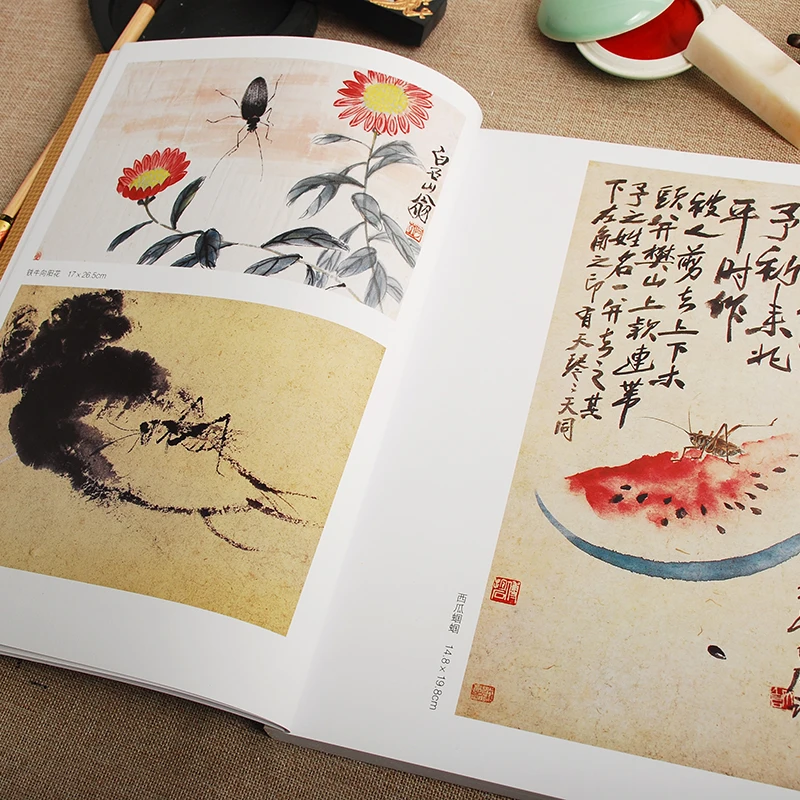 白石山翁
铁牛向阳花 17×26.5cm
予初来北
平時作
被人剪去上下木
頭并樊山上款連帶
予之姓名一并去之其
下左角之印有天琴二天同
西瓜蝈蝈 14.8×19.8cm